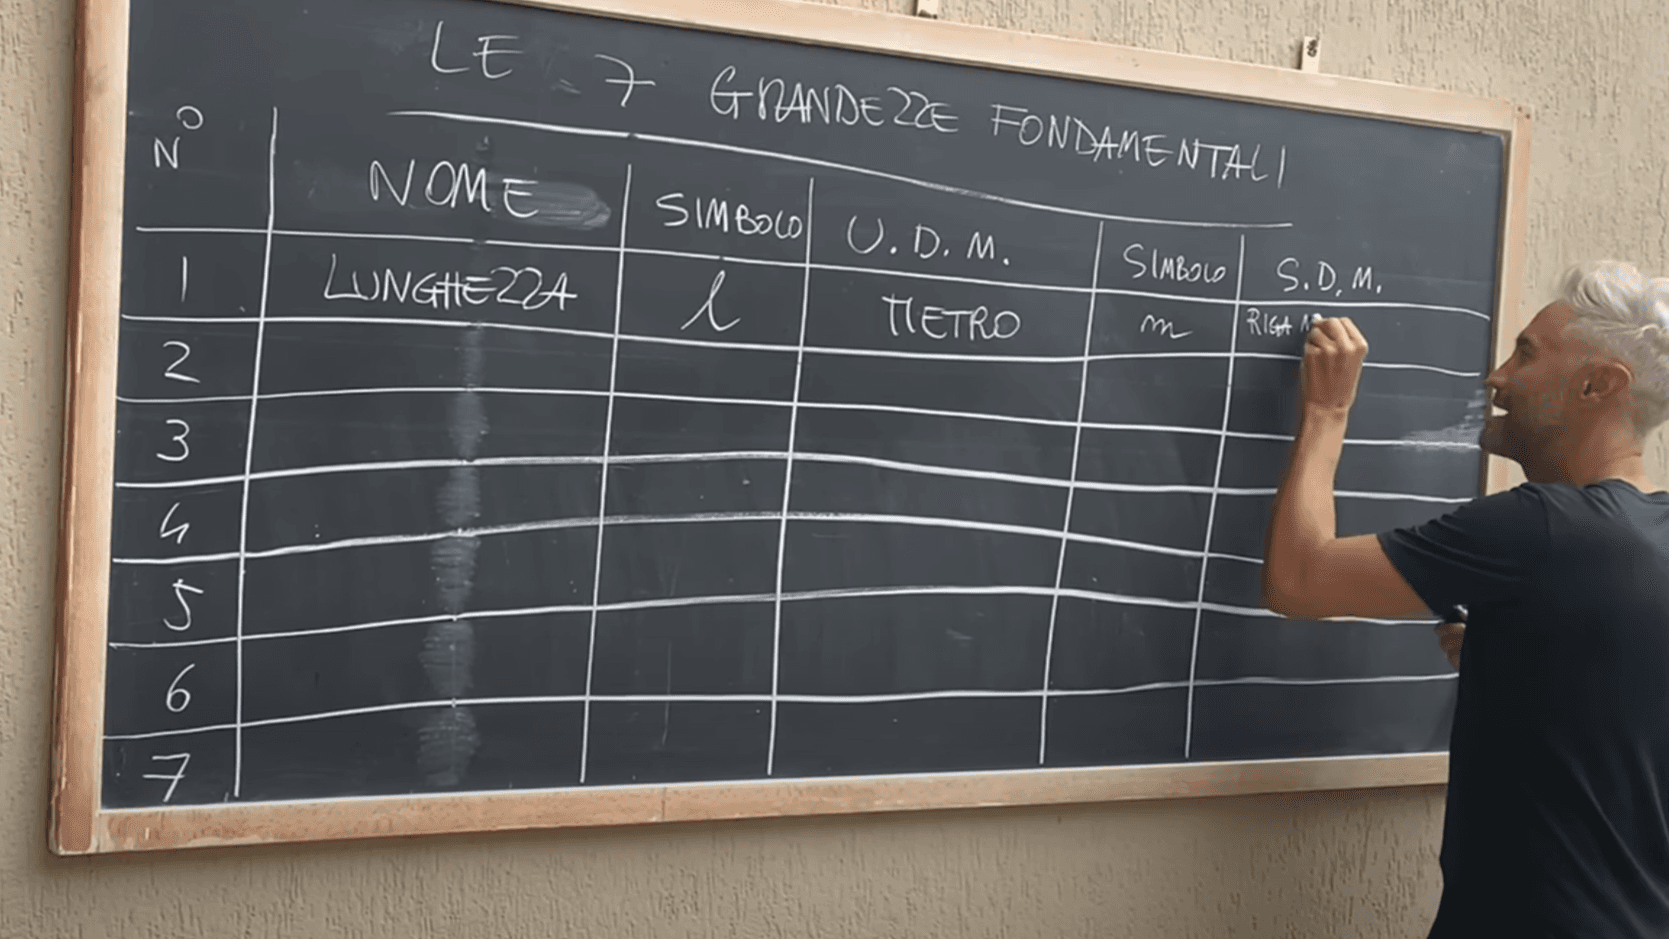 LE 7 GRANDEZZE FONDAMENTALI
N° NOME SIMBOLO U.D.M. SIMBOLO S.D.M.
1 LUNGHEZZA l METRO m RIGA
2
3
4
5
6
7